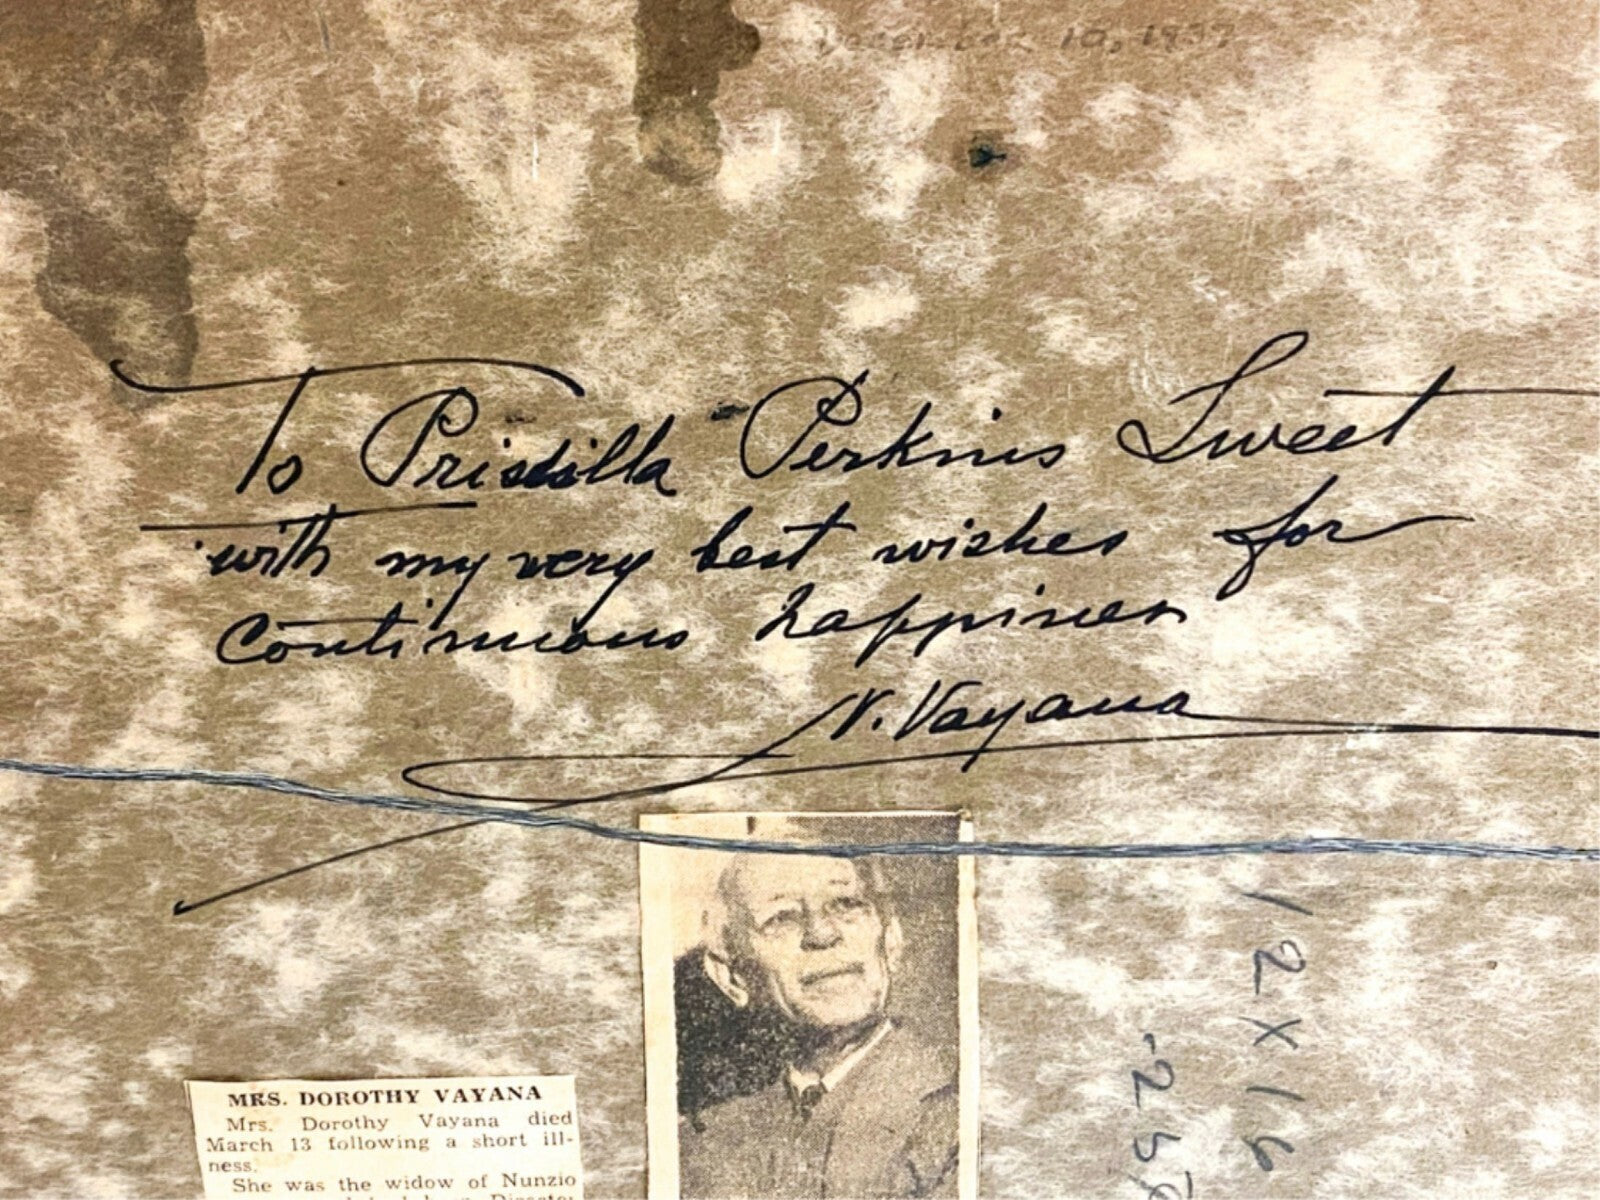 December 10, 1937
To Priscilla Perkins Sweet
with my very best wishes for
Continuous happiness
N. Vayana
12 X 16
MRS. DOROTHY VAYANA
Mrs. Dorothy Vayana died
March 13 following a short ill-
ness.
She was the widow of Nunzio